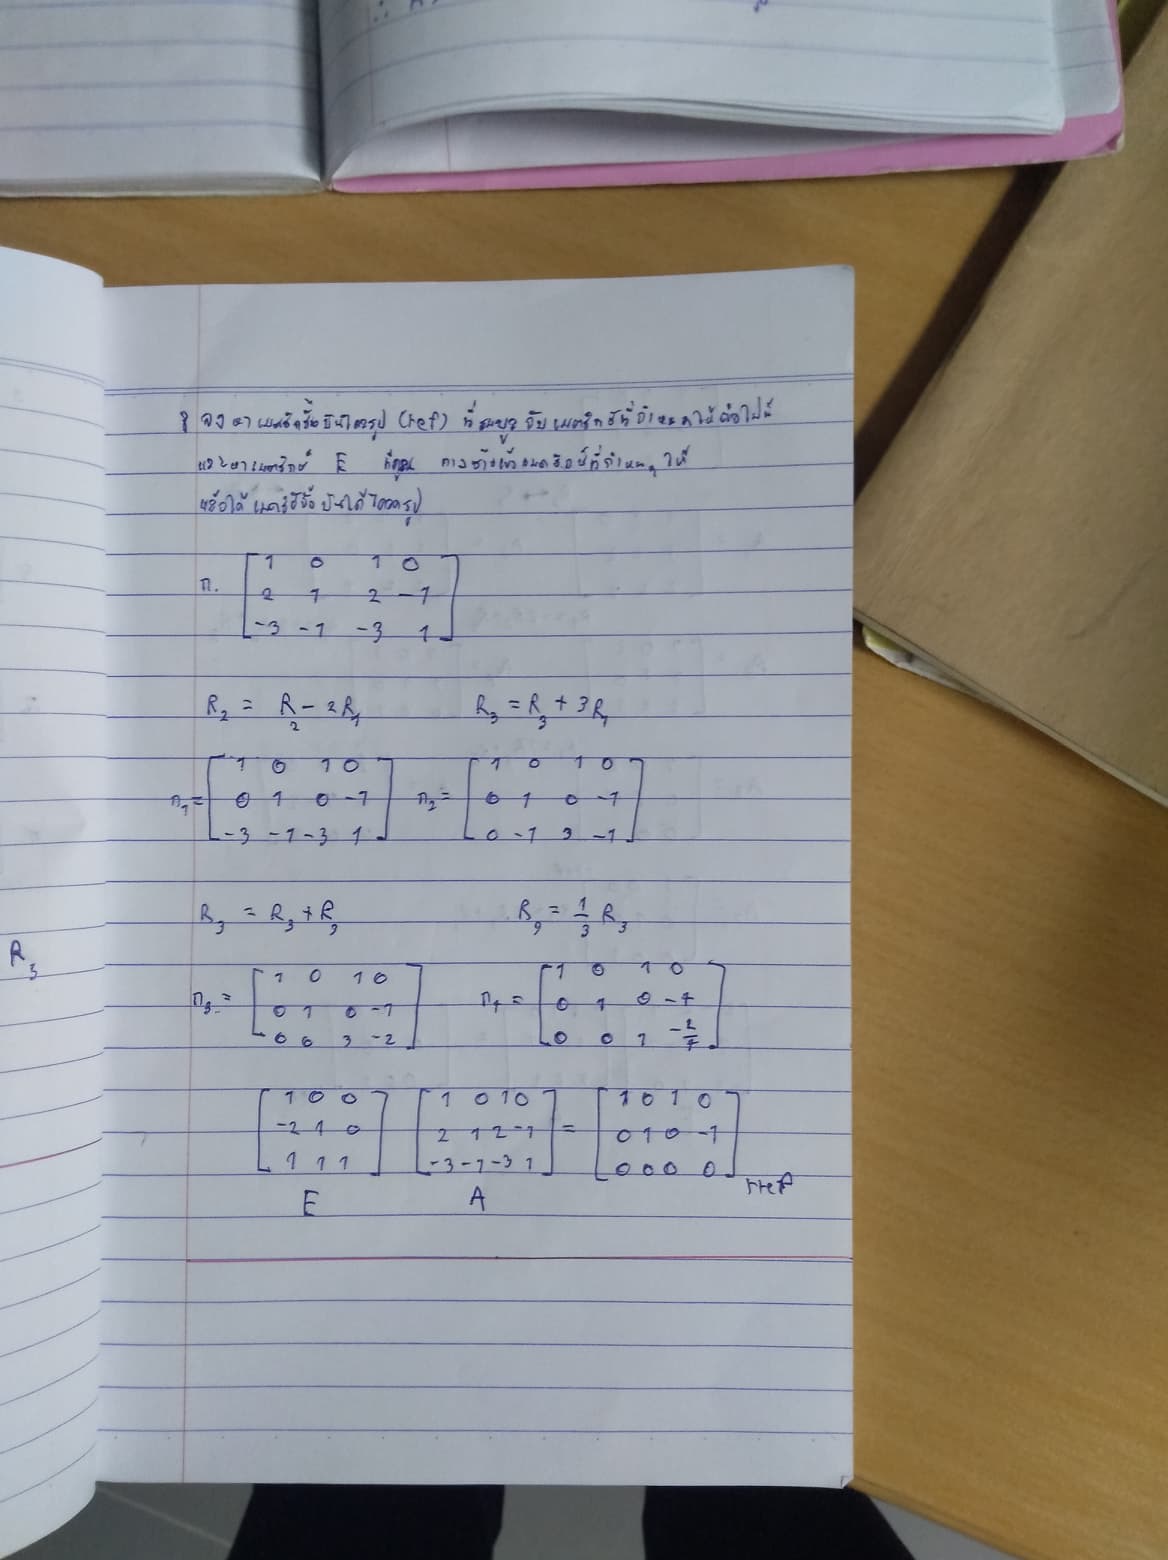 8 จงหาเมตริกซ์ขั้นบันไดลดรูป (rref) ที่สมมูลกับเมตริกซ์ที่กำหนดให้ต่อไปนี้
และหาเมตริกซ์ E ที่คูณ ทางซ้ายของเมตริกซ์ที่กำหนดให้
แล้วได้เมตริซ์ขั้นบันไดลดรูป
ก.
1 0 1 0
2 1 2 -1
-3 -1 -3 1
R2 = R2 - 2R1    R3 = R3 + 3R1
1 0 1 0    1 0 1 0
ก1 = 0 1 0 -1    ก2 = 0 1 0 -1
-3 -1 -3 1    0 -1 3 -1
R3 = R3 + R2    R3 = 1/3 R3
1 0 1 0    1 0 1 0
ก3 = 0 1 0 -1    ก4 = 0 1 0 -1
0 0 3 -2    0 0 1
1 0 0    1 0 1 0    1 0 1 0
-2 1 0    2 1 2 -1 = 0 1 0 -1
1 1 1    -3 -1 -3 1    0 0 0 0
rref
E    A
R3